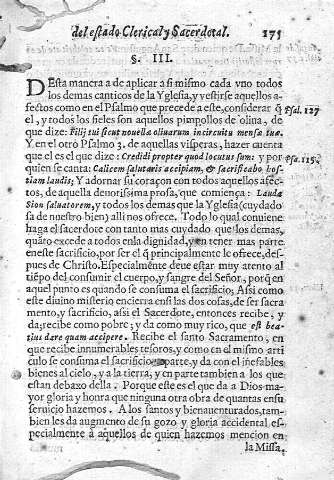 del estado Clerical y Sacerdotal. 175
§. III.
DEsta manera a de aplicar a si mismo cada vno todos
los demas canticos de la Yglesia, y vestirse aquellos a-
fectos como en el Psalmo que precede a este, considerar q̃
el, y todos los fieles son aquellos pimpollos de oliua, de
que dize: Filij tui sicut nouellæ oliuarum in circuitu mensæ tuæ.
Y en el otro Psalmo 3. de aquellas visperas, hazer cuenta
que el es el que dize: Credidi propter quod locutus sum: y por
quien se canta: Calicem salutaris accipiam, & sacrificabo hos-
tiam laudis; Y adornar su coraçon con todos aquellos afec-
tos, de aquella deuotissima prosa, que comiença: Lauda
Sion saluatorem, y todos los demas que la Yglesia (cuydado
sa de nuestro bien) alli nos ofrece. Todo lo qual conuiene
haga el sacerdote con tanto mas cuydado que los demas,
quãto excede a todos en la dignidad, y en tener mas parte
en este sacrificio, por ser el q̃ principalmente le ofrece, des-
pues de Christo. Especialmente deue estar muy atento al
tiempo del consumir el cuerpo, y sangre del Señor, porq̃ en
aquel punto es quando se consuma el sacrificio; Assi como
este diuino misterio encierra en si las dos cosas, de ser sacra-
mento, y sacrificio, assi el Sacerdote, entonces recibe, y
da; recibe como pobre; y da como muy rico, que est bea-
tius dare quam accipere. Recibe el santo Sacramento, en
que recibe innumerables tesoros, y como en el mismo arti
culo se consuma el sacrificio parte, y da con inefables
bienes al cielo, y a la tierra, y en parte tambien a los que
estan debaxo della. Porque este es el que da a Dios ma-
yor gloria y honra que ninguna otra obra de quantas en su
seruicio hazemos. A los santos y bienauenturados, tam-
bien les da augmento de su gozo y gloria accidental es
pecialmente à aquellos de quien hazemos mencion en
la Missa,
Psal. 127
Psa. 115.